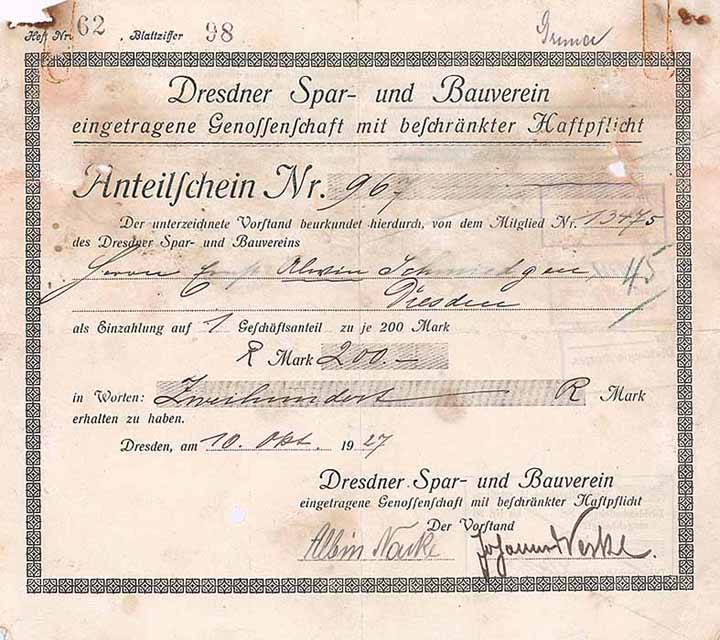 Heft Nr. 62, Blattziffer 98
Dresdner Spar- und Bauverein
eingetragene Genoſſenſchaft mit beſchränkter Haftpflicht
Anteilſchein Nr. 967
Der unterzeichnete Vorſtand beurkundet hierdurch, von dem Mitglied Nr. 13475
des Dresdner Spar- und Bauvereins
Herrn Ernst Alwin Schmiedgen 45
Dresden
als Einzahlung auf 1 Geſchäftsanteil zu je 200 Mark
R Mark 200.—
in Worten: Zweihundert — R Mark
erhalten zu haben.
Dresden, am 10. Okt. 1927
Dresdner Spar- und Bauverein
eingetragene Genoſſenſchaft mit beſchränkter Haftpflicht
Der Vorſtand
Albin Johannes